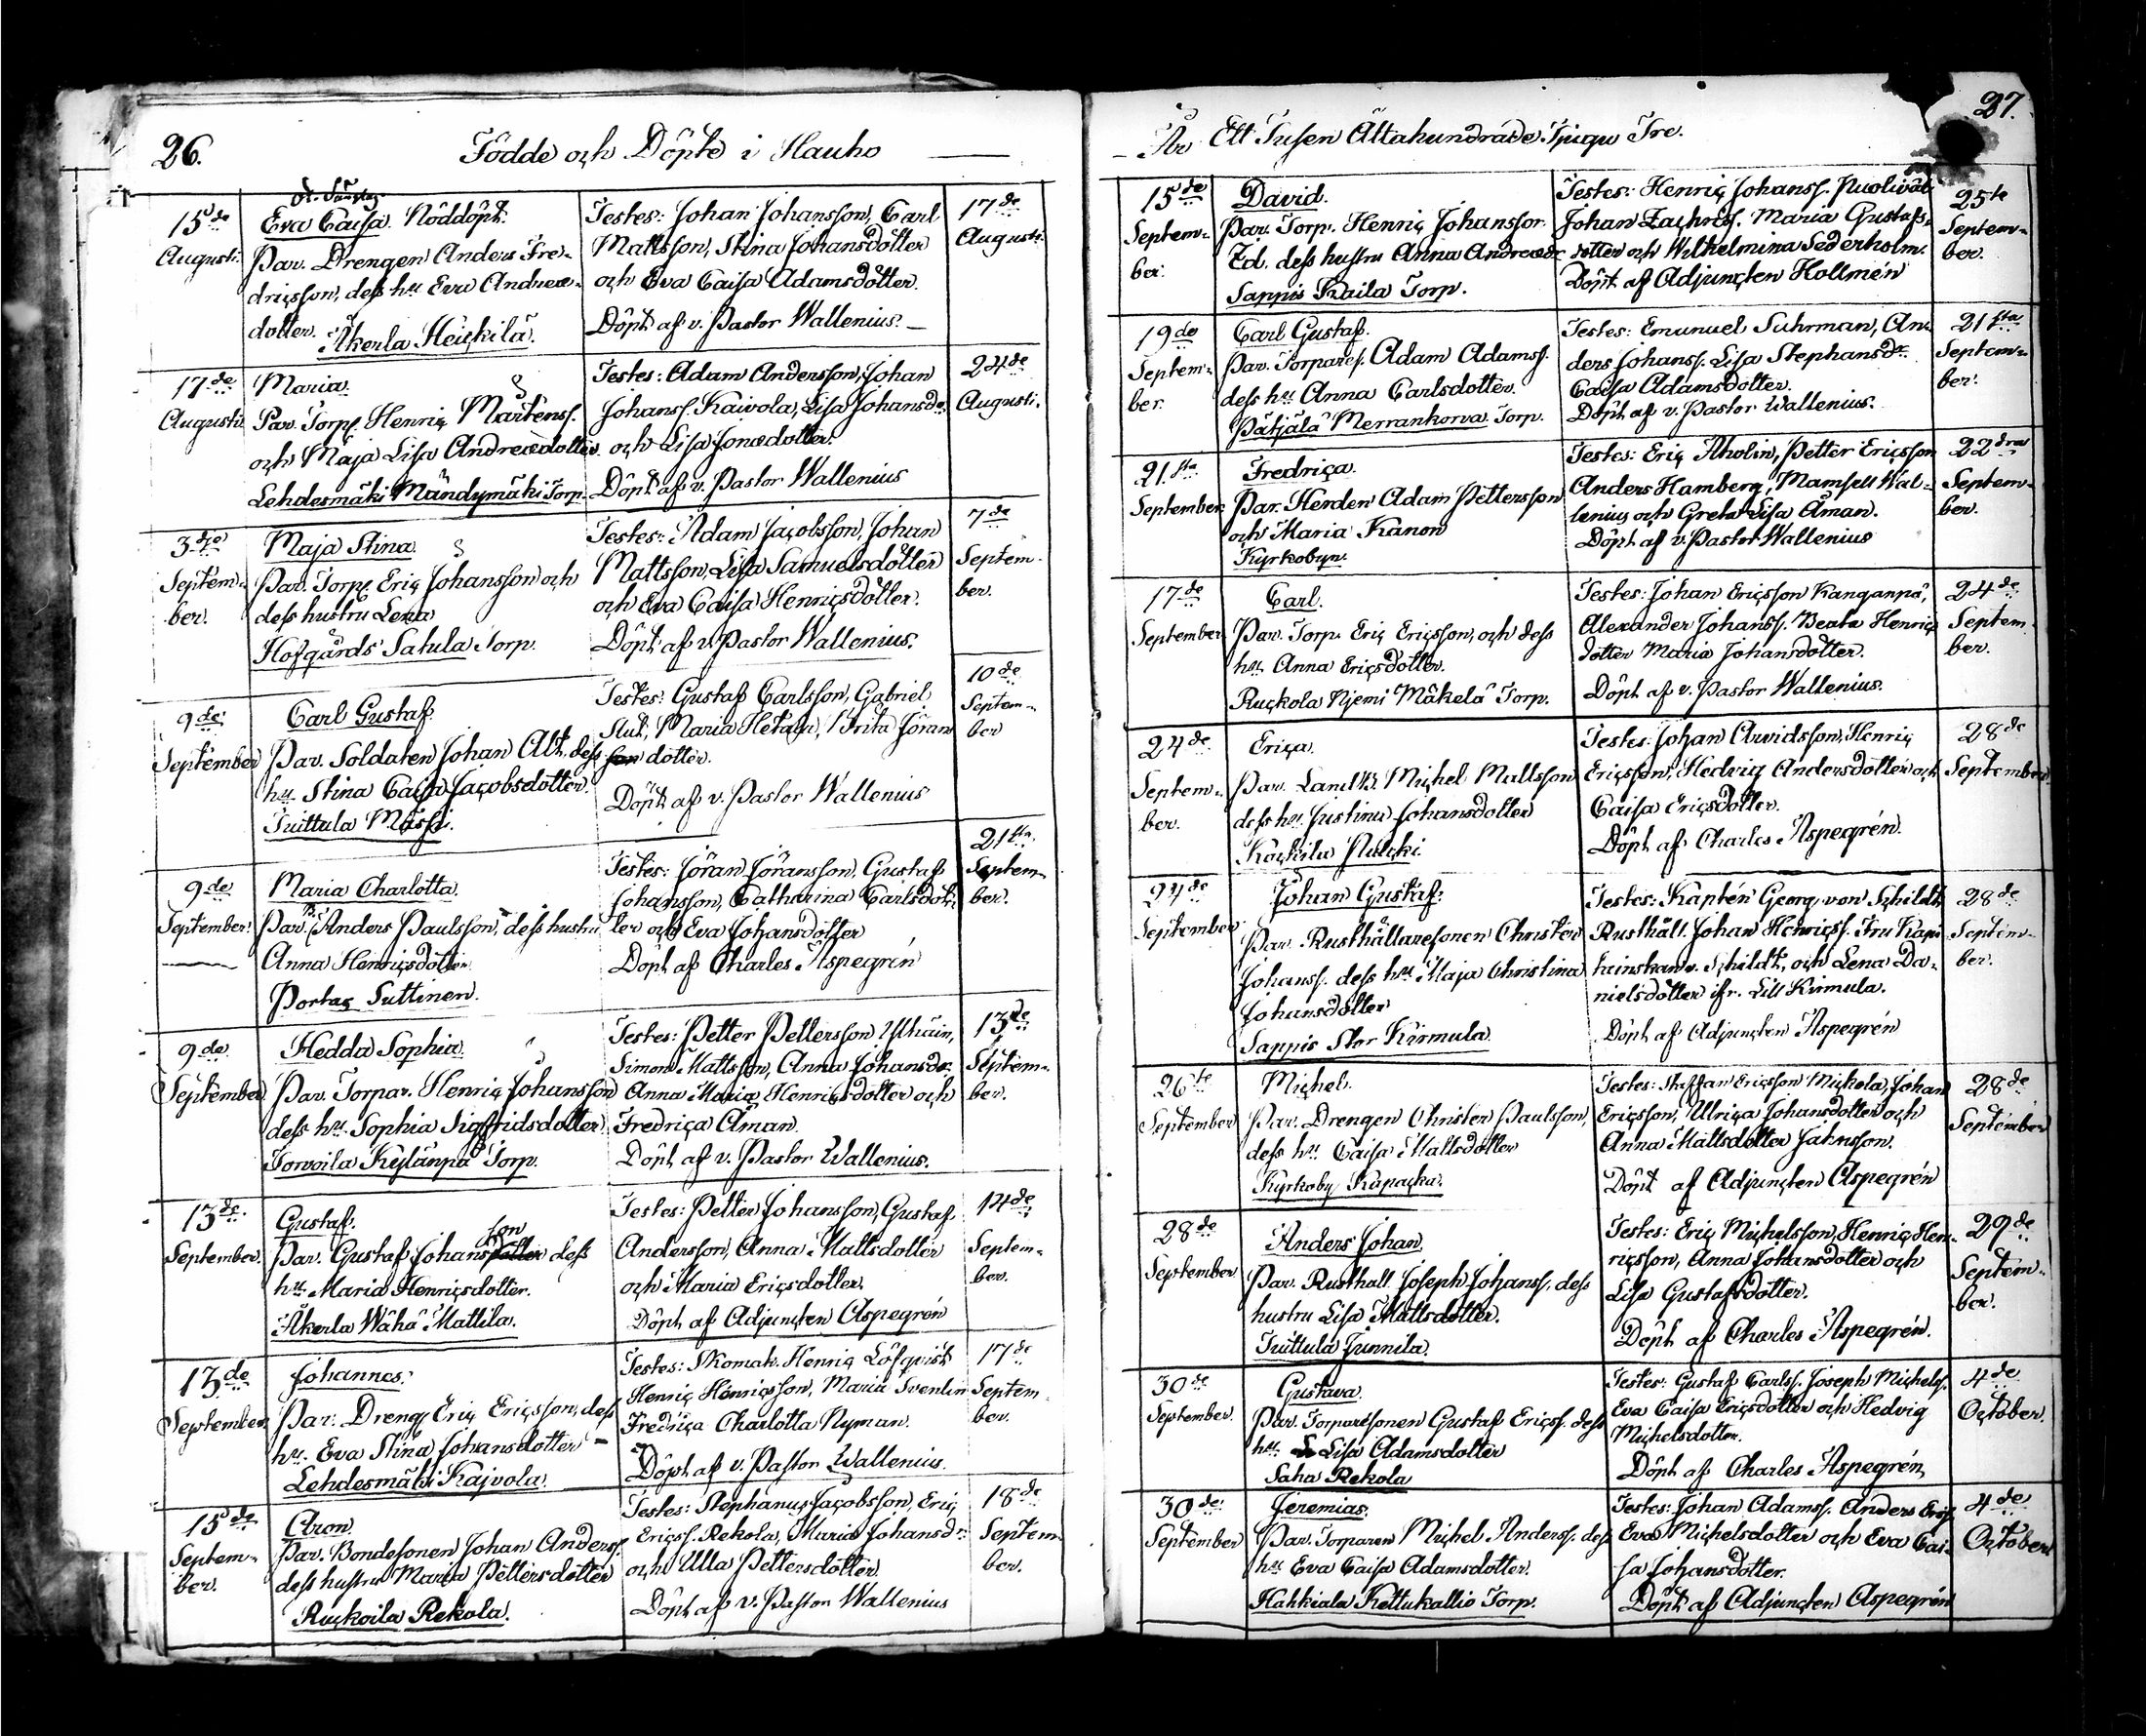 26.
Födde och Döpte i Hauho
15de
Augusti.
Eva Caisa. Nöddöpt.
Par. Drengen Anders Fre-
dricsson, dess hu Eva Andreæ-
dotter. Åkerla Heickilä.
Testes: Johan Johansson, Carl
Mattsson, Stina Johansdotter
och Eva Caisa Adamsdotter.
Döpt af v. Pastor Wallenius.
17de
Augusti.
17de
Augusti
Maria.
Par. Torp. Henric Mårtenss.
och Maja Lisa Andreædotter
Lehdesmäki Mändymäki Torp.
Testes: Adam Andersson, Johan
Johanss. Kaivola, Lisa Johansdr
och Lisa Jonædotter.
Döpt af v. Pastor Wallenius
24de
Augusti.
3dje
Septem-
ber.
Maja Stina.
Par. Torp. Eric Johansson och
dess hustru Lena
Hofgårds Satula Torp.
Testes: Adam Jacobsson, Johan
Mattsson, Lisa Samuelsdotter
och Eva Caisa Henricsdotter.
Döpt af v. Pastor Wallenius.
7de
Septem-
ber.
9de
September
Carl Gustaf.
Par. Soldaten Johan Alt, dess
hu Stina Caisa Jacobsdotter.
Tuittula Massi.
Testes: Gustaf Carlsson, Gabriel
Slut, Maria Hetayi, Brita Jöran
son dotter.
Döpt af v. Pastor Wallenius
10de
Septem-
ber
9de
September.
Maria Charlotta.
Par. Anders Paulsson, dess hustru
Anna Henricsdotter
Portas Suttinen.
Testes: Jöran Jöransson, Gustaf
Johansson, Catharina Carlsdot-
ter och Eva Johansdotter
Döpt af Charles Aspegrén
21sta
Septem-
ber.
9de
September
Hedda Sophia.
Par. Torpar. Henric Johansson
dess hu Sophia Sigfridsdotter
Torvoila Kylänpä Torp.
Testes: Petter Pettersson Ylhäin,
Simon Mattsson, Anna Johansdr
Anna Maria Henricsdotter och
Fredrica Åman.
Döpt af v. Pastor Wallenius.
13de
Septem-
ber.
13de
September.
Gustaf.
son
Par. Gustaf Johansdotter dess
hu Maria Henricsdotter.
Åkerla Wähä Mattila.
Testes: Petter Johansson, Gustaf
Andersson, Anna Mattsdotter
och Maria Ericsdotter.
Döpt af Adjuncten Aspegrén
14de
Septem-
ber.
13de
September.
Johannes.
Par. Dreng. Eric Ericsson, dess
hu. Eva Stina Johansdotter
Lehdesmäki Kajvola.
Testes: Skomak. Henric Löfqvist
Henric Henricsson, Maria Svenlin
Fredrica Charlotta Nyman.
Döpt af v. Pastor Wallenius.
17de
Septem
ber.
15de
Septem-
ber.
Aron.
Par. Bondesonen Johan Anderss.
dess hustru Maria Pettersdotter
Ruckoila Rekola.
Testes: Stephanus Jacobsson, Eric
Ericss. Rekola, Maria Johansdr
och Ulla Pettersdotter
Döpt af v. Pastor Wallenius
18de
Septem
ber.
27.
År Ett Tusen Åttahundrade Tjugu Tre.
15de
Septem-
ber.
David.
Par. Torp. Henric Johansson
Ed. dess hustru Anna Andreædr
Sappis Kaila Torp.
Testes: Henric Johanss. Puolivät
Johan Zachriss. Maria Gustafs-
dotter och Wilhelmina Sederholm.
Döpt af Adjuncten Hollmén
25te
Septem-
ber.
19de
Septem-
ber.
Carl Gustaf.
Par. Torpares. Adam Adamss.
dess hu Anna Carlsdotter.
Pätjälä Merrankorva Torp.
Testes: Emanuel Suhrman, An-
ders Johanss. Lisa Stephansdr
Caisa Adamsdotter.
Döpt af v. Pastor Wallenius.
21sta
Septem-
ber.
21.sta
September.
Fredrica.
Par. Herden Adam Pettersson
och Maria Kanon
Kyrkobyn.
Testes: Eric Aholin, Petter Ericsson
Anders Hamberg, Mamsell Wal-
lenius och Greta Lisa Åman.
Döpt af v. Pastor Wallenius
22dra
Septem-
ber.
17de
September
Carl.
Par. Torp. Eric Ericsson, och dess
hu Anna Ericsdotter.
Ruckola Njemi Mäkelä Torp.
Testes: Johan Ericsson Kanganpä,
Alexander Johanss. Beata Henrics
dotter Maria Johansdotter.
Döpt af v. Pastor Wallenius.
24de
Septem
ber.
24de
Septem-
ber.
Erica.
Par. Landtb. Michel Mattsson
dess hu Justina Johansdotter
Kockila Nulcki.
Testes: Johan Arvidsson, Henric
Ericsson, Hedvig Andersdotter och
Caisa Ericsdotter.
Döpt af Charles Aspegrén.
28de
September
27de
September
Johan Gustaf.
Par. Rusthållaresonen Christer
Johanss. dess hu Maja Christina
Johansdotter
Sappis Stor Kirmula.
Testes: Kaptén Georg von Schildt
Rusthåll. Johan Henricss. Fru Kapi
tainskan v. Schildt, och Lena Da-
nielsdotter ifr. Lill Kirmula.
Döpt af Adjuncten Aspegrén
28de
Septem-
ber.
26te
September
Michel.
Par. Drengen Christer Paulsson,
dess hu Caisa Mattsdotter
Kyrkoby Kapacka.
Testes: Staffan Ericsson Mickola, Johan
Ericsson, Ulrica Johansdotter och
Anna Mattsdotter Jahnsson.
Döpt af Adjuncten Aspegrén
28de
September
28de
September
Anders Johan.
Par. Rusthåll. Joseph Johanss. dess
hustru Lisa Mattsdotter.
Tuittula Junnila.
Testes: Eric Michelsson, Henric Hen-
ricsson, Anna Johansdotter och
Lisa Gustafsdotter.
Döpt af Charles Aspegrén.
29de
Septem-
ber.
30de
September.
Gustava.
Par. Torparesonen Gustaf Ericss. dess
hu Lisa Adamsdotter
Saha Rekola
Testes: Gustaf Carlss. Joseph Michelss.
Eva Caisa Ericsdotter och Hedvig
Michelsdotter.
Döpt af Charles Aspegrén
4de
October.
30de
September
Jeremias.
Par. Torparen Michel Anderss. dess
hu Eva Caisa Adamsdotter.
Hahkiala Kettukallio Torp.
Testes: Johan Adamss. Anders Ericss.
Eva Michelsdotter och Eva Cai-
sa Johansdotter.
Döpt af Adjuncten Aspegrén
4de
October